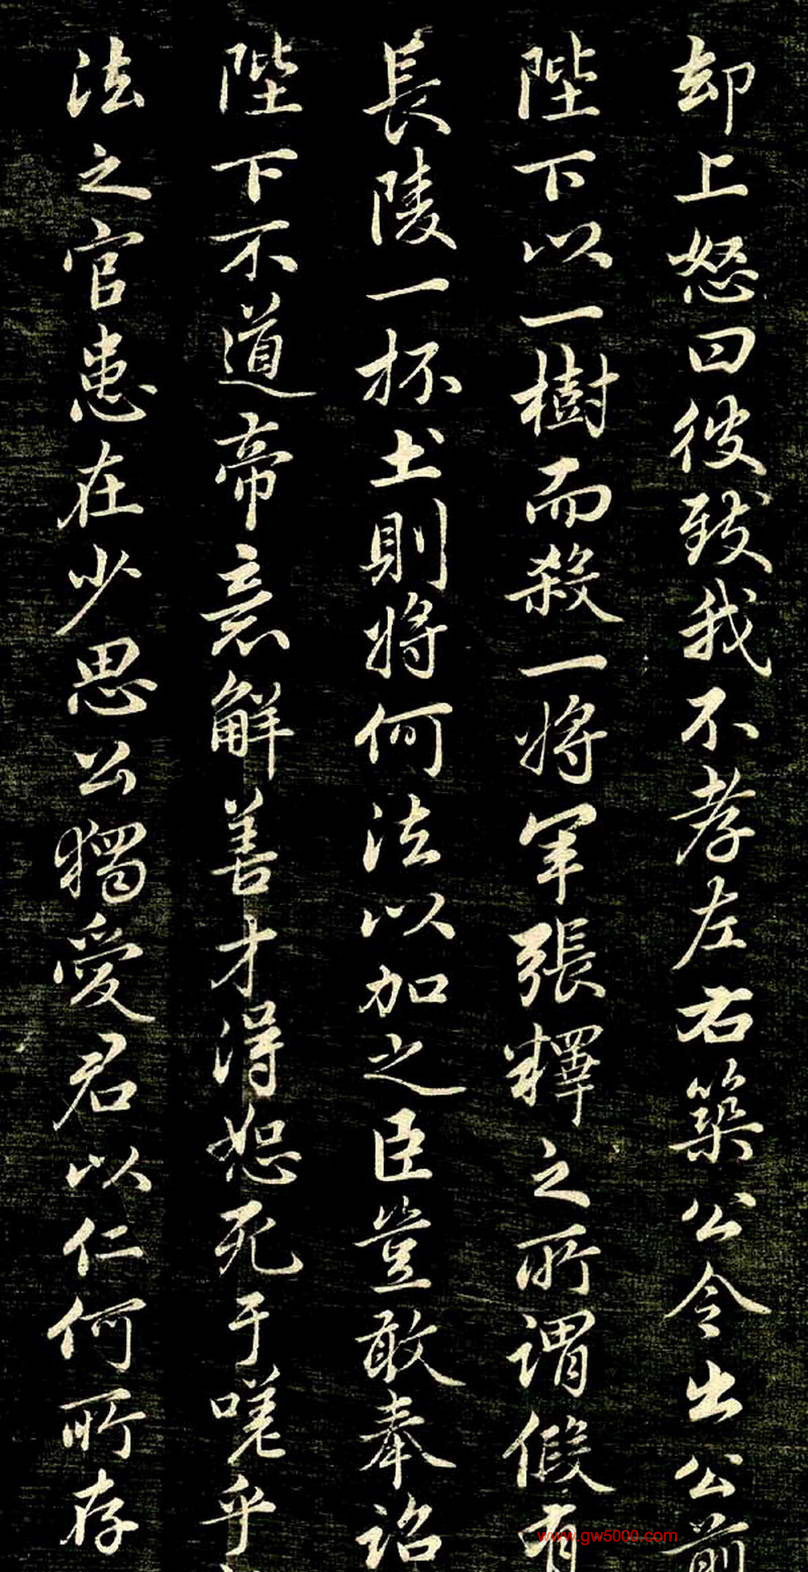 却上怒曰彼致我不孝左右築公令出公前
陛下以一樹而殺一將軍張釋之所謂假有
長陵一抔土則將何法以加之臣豈敢奉詔
陛下不道帝意解善才得恕死于嗟乎
法之官患在少思公獨愛君以仁何所存
www.gw5000.com